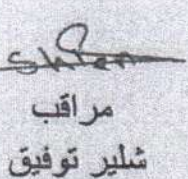 مراقب
شلير توفيق